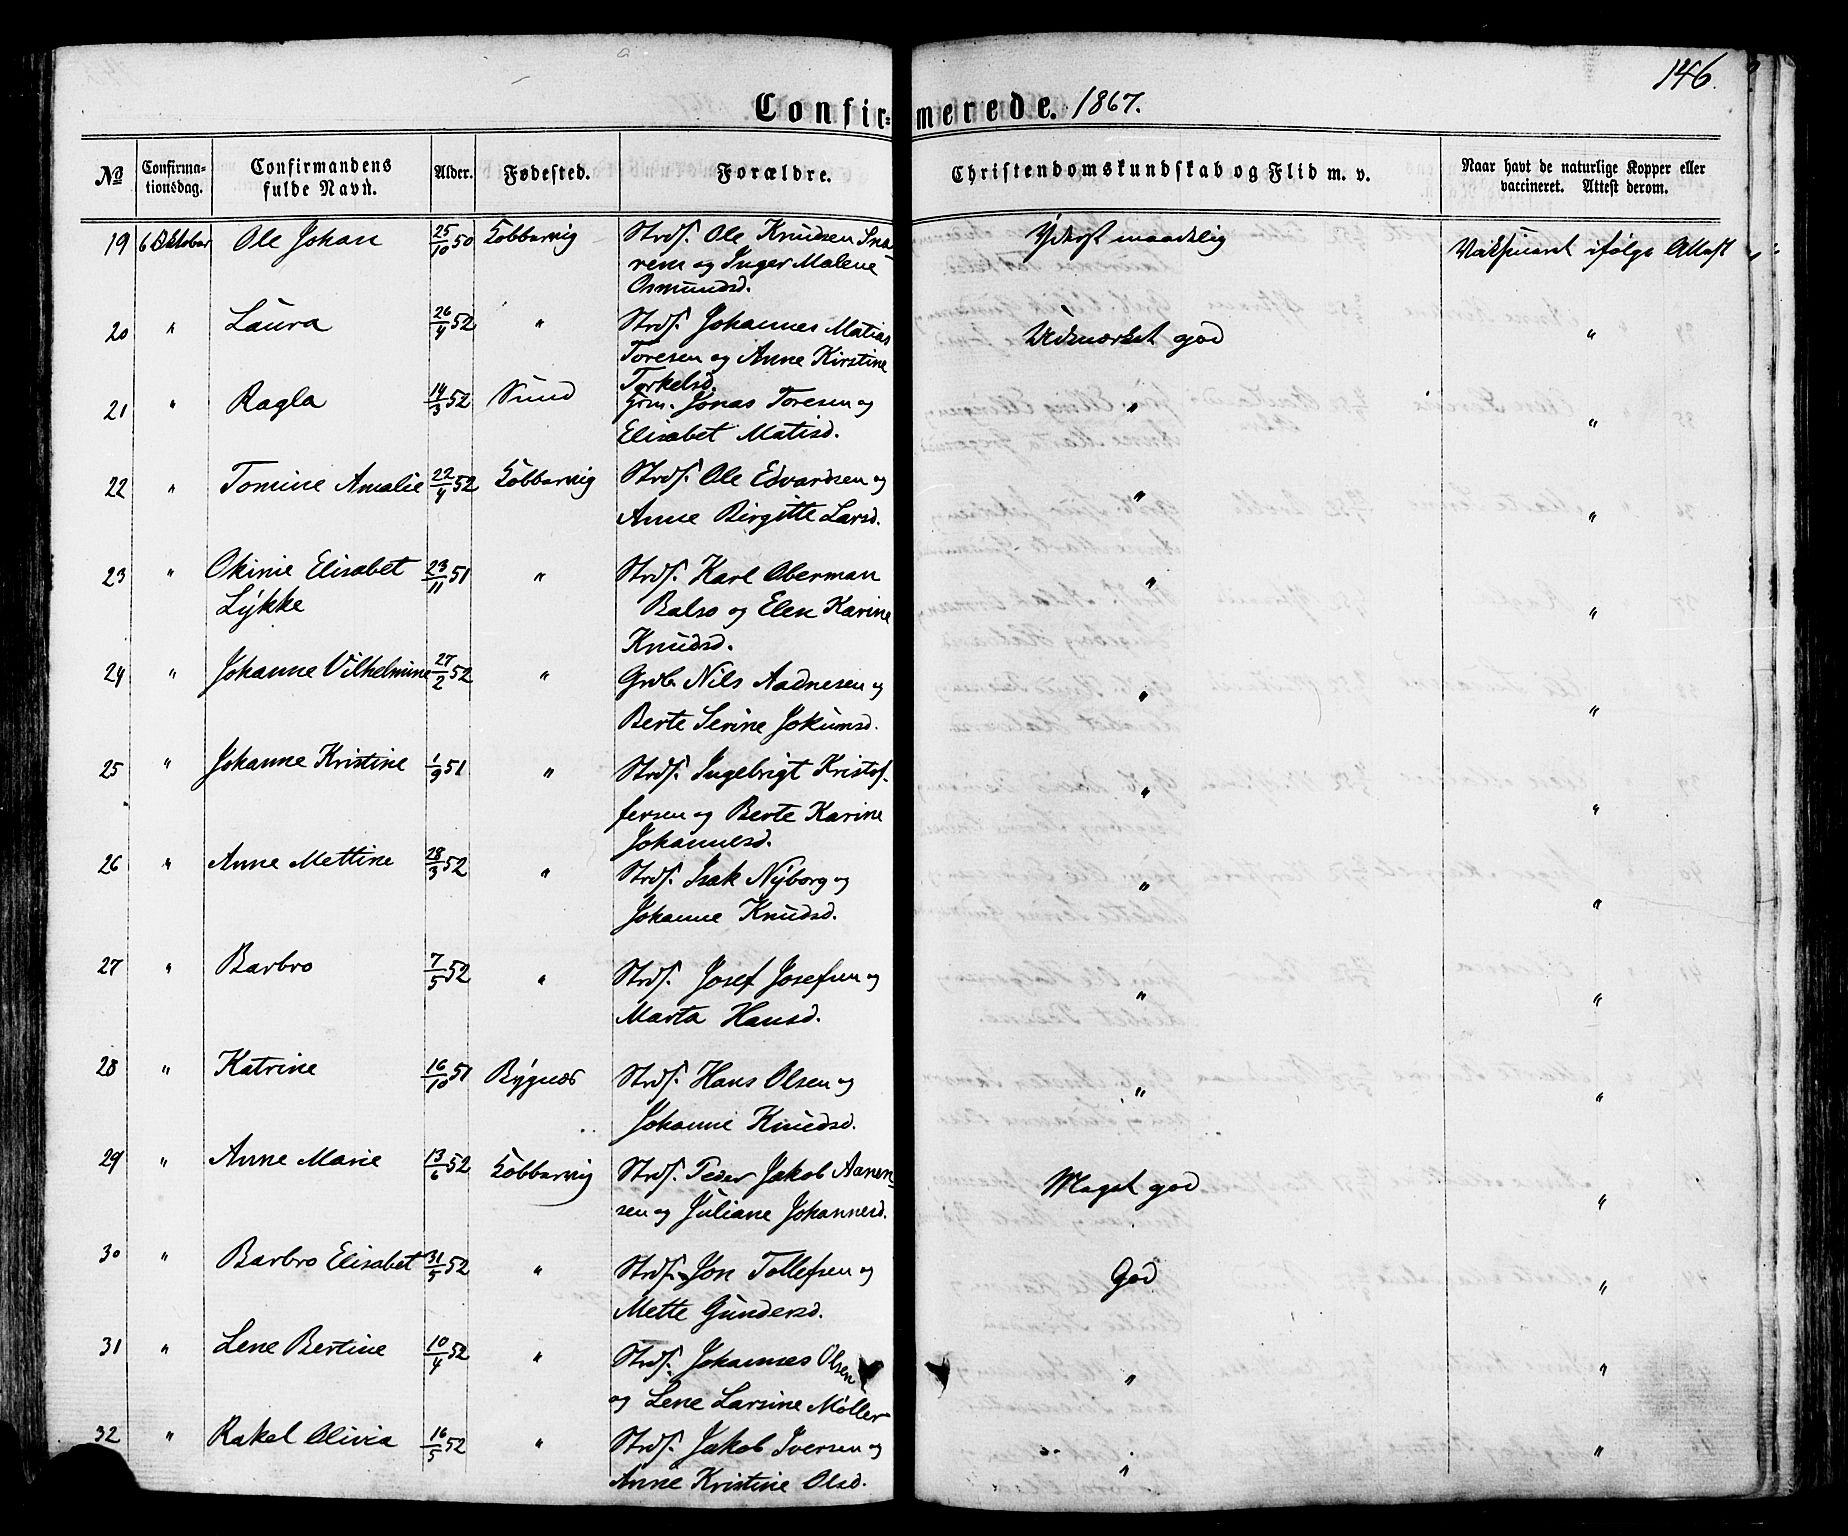 146.
Confir= merede. 1867.
No Confirma-tionsdag. Confirmandens fulde Navn. Alder. Fødested. Forældre. Christendomskundskab og Flid m. v. Naar havt de naturlige Kopper eller vaccineret. Attest derom.
19 6 Oktober Ole Johan 25/10 50 Kobbervig Strds. Ole Knudsen Sna- Yderst maadelig Vaksineret ifølge Attest
rem og Inger Malene
Osmundsd.
20 " Laura 26/4 52 " Strds. Johannes Matias Udmærket god "
Toresen og Anne Kirstine
Torkelsd.
21 " Ragla 14/3 52 Sund Grm. Jonas Toresen og " "
Elisabet Matisd.
22 " Tomine Amalie 22/4 52 Kobbervig Strds. Ole Edvardsen og " "
Anne Birgitte Larsd.
23 " Okinie Elisabet 23/11 51 " Strds. Karl Oberman " "
Lykke Balso og Elen Karine
Knudsd.
24 " Johanne Vilhelmine 27/2 52 " Grdb. Nils Aadnesen og " "
Berte Serine Jokumsd.
25 " Johanne Kristine 1/9 51 " Strds. Ingebrigt Kristof- " "
fersen og Berte Karine
Johannesd.
26 " Anne Mettine 28/3 52 " Strds. Isak Nyborg og " "
Johanne Knudsd.
27 " Barbro 7/5 52 " Strds. Josef Josefsen og " "
Marta Hansd.
28 " Katrine 16/10 51 Bygnes Strds. Hans Olsen og " "
Johanne Knudsd.
29 " Anne Marie 13/6 52 Kobbervig Strds. Peder Jakob Aanen- Meget god "
sen og Juliane Johannesd.
30 " Barbro Elisabet 31/5 52 " Strds. Jon Tollefsen og God "
Mette Gundersd.
31 " Lene Bertine 10/4 52 " Strds. Johannes Olsen " "
og Lene Larsine Møller
32 " Rakel Olivia 16/5 52 " Strds. Jakob Iversen og " "
Anne Kristine Olsd.